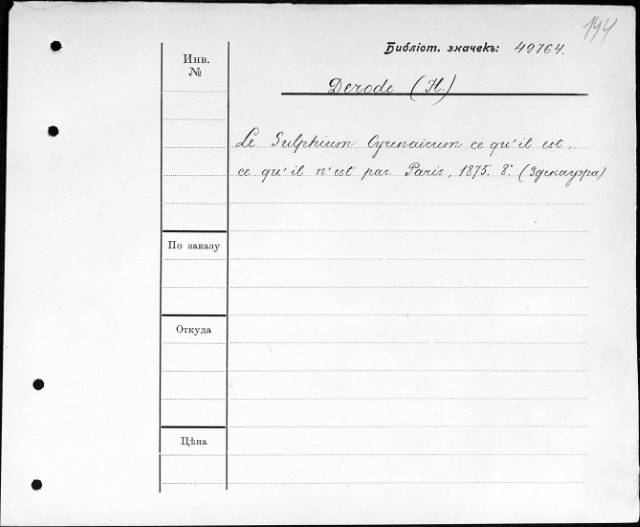 144
Библіот. значекъ: 49764.
Инв.
№
Derode (H.)
Le Sulphium Cyrenaicum ce qu'il est,
ce qu'il n'est pas. Paris, 1875. 8°.
По заказу
Откуда
Цѣна